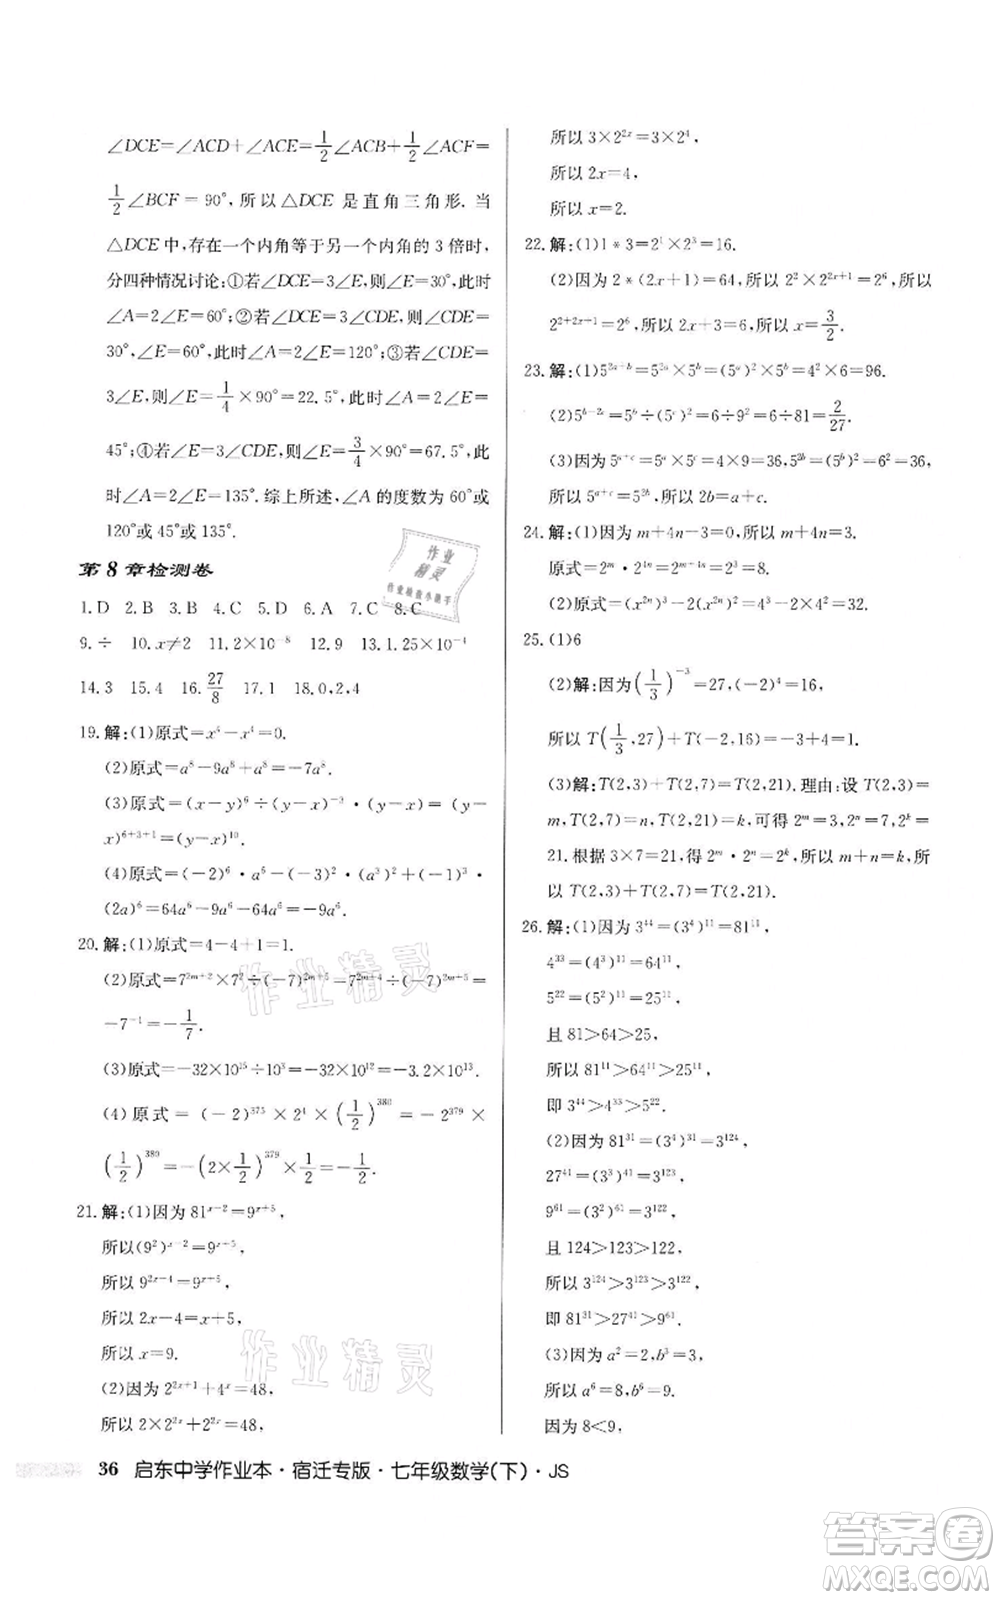 ∠DCE=∠ACD+∠ACE=1/2∠ACB+1/2∠ACF=
1/2∠BCF=90°,所以△DCE 是直角三角形. 当
△DCE 中,存在一个内角等于另一个内角的 3 倍时,
分四种情况讨论:①若∠DCE=3∠E,则∠E=30°,此时
∠A=2∠E=60°;②若∠DCE=3∠CDE,则∠CDE=
30°,∠E=60°,此时∠A=2∠E=120°;③若∠CDE=
3∠E,则∠E=1/4×90°=22.5°,此时∠A=2∠E=
45°;④若∠E=3∠CDE,则∠E=3/4×90°=67.5°,此
时∠A=2∠E=135°.综上所述,∠A 的度数为 60°或
120°或 45°或 135°.
第 8 章检测卷
1.D 2.B 3.B 4.C 5.D 6.A 7.C 8.C
9.÷ 10.x≠2 11.2×10⁻⁸ 12.9 13.1.25×10⁻⁴
14.3 15.4 16.27/8 17.1 18.0,2,4
19.解:(1)原式=x⁴-x⁴=0.
(2)原式=a⁸-9a⁸+a⁸=-7a⁸.
(3)原式=(x-y)⁶÷(x-y)⁻³·(x-y)=(x-
y)⁶⁺³⁺¹=(x-y)¹⁰.
(4)原式=(-2)⁶·a⁶-(-3)²·(a³)²+(-1)·
(2a)⁶=64a⁶-9a⁶-64a⁶=-9a⁶.
20.解:(1)原式=4-4+1=1.
(2)原式=7^(2m+2)×7²÷(-7)^(2m+5)=-7^(2m+4)÷7^(2m+5)
=-7⁻¹=-1/7.
(3)原式=-32×10¹⁵÷10²=-32×10¹³=-3.2×10¹⁴.
(4)原式=(-2)³⁷⁵×2⁴×(1/2)³⁸⁰=-2³⁷⁹×
(1/2)³⁸⁰=-(2×1/2)³⁷⁹×1/2=-1/2.
21.解:(1)因为 81^(x-2)=9^(x+5),
所以(9²)^(x-2)=9^(x+5),
所以 9^(2x-4)=9^(x+5),
所以 2x-4=x+5,
所以 x=9.
(2)因为 2^(2x+1)+4^x=48,
所以 2×2^(2x)+2^(2x)=48,
所以 3×2^(2x)=3×2⁴,
所以 2x=4,
所以 x=2.
22.解:(1)1*3=2¹×2³=16.
(2)因为 2*(2x+1)=64,所以 2²×2^(2x+1)=2⁶,所以
2^(2+2x+1)=2⁶,所以 2x+3=6,所以 x=3/2.
23.解:(1)5^(2a+b)=5^(2a)×5^b=(5^a)²×5^b=4²×6=96.
(2)5^(b-2c)=5^b÷(5^c)²=6÷9²=6÷81=2/27.
(3)因为 5^(a+c)=5^a×5^c=4×9=36,5^(2b)=6²=36,所
以 5^(a+c)=5^(2b),所以 2b=a+c.
24.解:(1)因为 m+4n-3=0,所以 m+4n=3.
原式=2^m·2^(4n)=2^(m+4n)=2³=8.
(2)原式=(x^(2n))³-2(x^(2n))²=4³-2×4²=32.
25.(1)6
(2)解:因为(1/3)⁻³=27,(-2)⁴=16,
所以 T(1/3,27)+T(-2,16)=-3+4=1.
(3)解:T(2,3)+T(2,7)=T(2,21).理由:设 T(2,3)=
m,T(2,7)=n,T(2,21)=k,可得 2^m=3,2^n=7,2^k=
21.根据 3×7=21,得 2^m·2^n=2^k,所以 m+n=k,所
以 T(2,3)+T(2,7)=T(2,21).
26.解:(1)因为 3⁴⁴=(3⁴)¹¹=81¹¹,
4³³=(4³)¹¹=64¹¹,
5²²=(5²)¹¹=25¹¹,
且 81>64>25,
所以 81¹¹>64¹¹>25¹¹,
即 3⁴⁴>4³³>5²².
(2)因为 81³¹=(3⁴)³¹=3¹²⁴,
27⁴¹=(3³)⁴¹=3¹²³,
9⁶¹=(3²)⁶¹=3¹²²,
且 124>123>122,
所以 3¹²⁴>3¹²³>3¹²²,
即 81³¹>27⁴¹>9⁶¹.
(3)因为 a²=2,b³=3,
所以 a⁶=8,b⁶=9,
因为 8<9,
36 启东中学作业本·宿迁专版·七年级数学(下)·JS
作业精灵
作业精灵
作业
精灵
答案卷
MXQE.COM